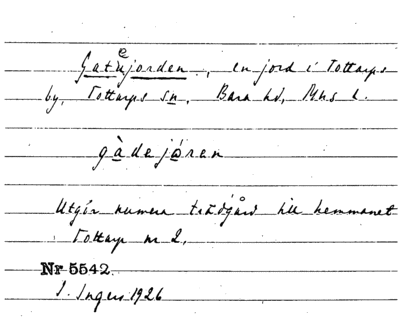 Gatejorden, en jord i Tottarps
by, Tottarps sn, Bara hd, Mhs l.
gàdejǫ́ren
Utgör numera trädgård till hemmanet
Tottarp nr 2.
Nr 5542.
I. Ingers 1926